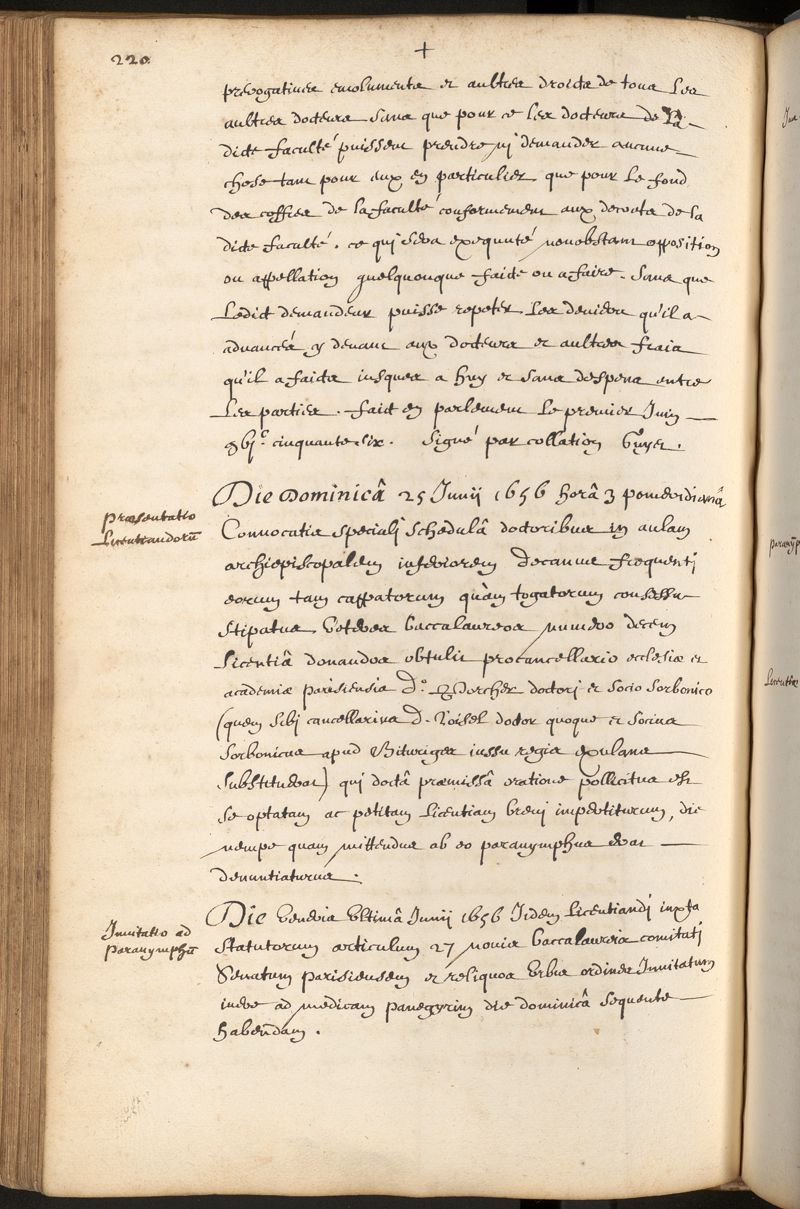 220
+
prerogatives emolumentz et aultres droictz de tous Les
aultres docteurs sans que pour ce les docteurs de La
dicte faculté puissent prendre nj demander aucune
chose tant pour eux en particulier que pour le fond
des coffres de la faculté conformement aux decretz de la
dicte faculté. ce qui sera exequuté nonobstant opposition
ou appellation quelquonque faicte ou a faire. Sans que
Ledict demandeur puisse repeter Les deniers qu'il a
advancés cy devant aux docteurs et aultres fraiz
qu'il a faictz jusques a huy et sans despens entre
Les parties. faict en parlement Le premier Juin
cinquante six. Signé par collation Guyet.
Præsentatio
Licentiandorū
Die Dominicâ 25 Junij 1656 horâ 3 pomeridianâ
Convocatis specialj schedulâ doctoribus in aulam
archiepiscopalem inferiorem Decanus frequentj
eorum tam cappatorum quàm togatorum consessu
stipatus Veteres Baccalaureos numero decem
Licentiâ donandos obtulit procancellario ecclesiæ et
academiæ parisiensis D.º Porcher doctorj et socio sorbonico
(quem sibj cancellarius D. Loisel doctor quoque et socius
sorbonicus apud Bituriges jussu regis exulans
substituerat) qui doctâ præmissâ oratione pollicitus est
se optatam ac petitam Licentiam brevj impertiturum, die
nempe quam mittendus ab eo paranymphus erat
denuntiaturus.
Invitatio ad
Paranymphū
Die Veneris Ultimâ Junij 1656 Jidem Licentiandj juxta
statutorum articulum 27 novis baccalaureis comitatj
Senatum parisiensem et reliquos Urbis ordines Invitatum
ivere ad medicam panegyrim die dominicâ sequente
habendam.